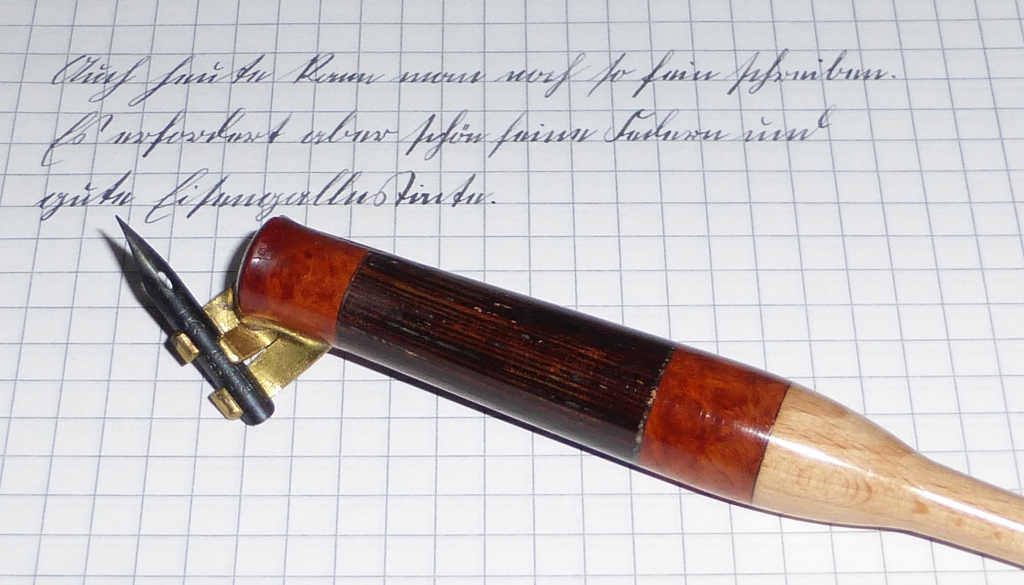 Auch heute kann man noch so fein schreiben.
Es erfordert aber schön feine Federn und
gute Eisengallustinte.